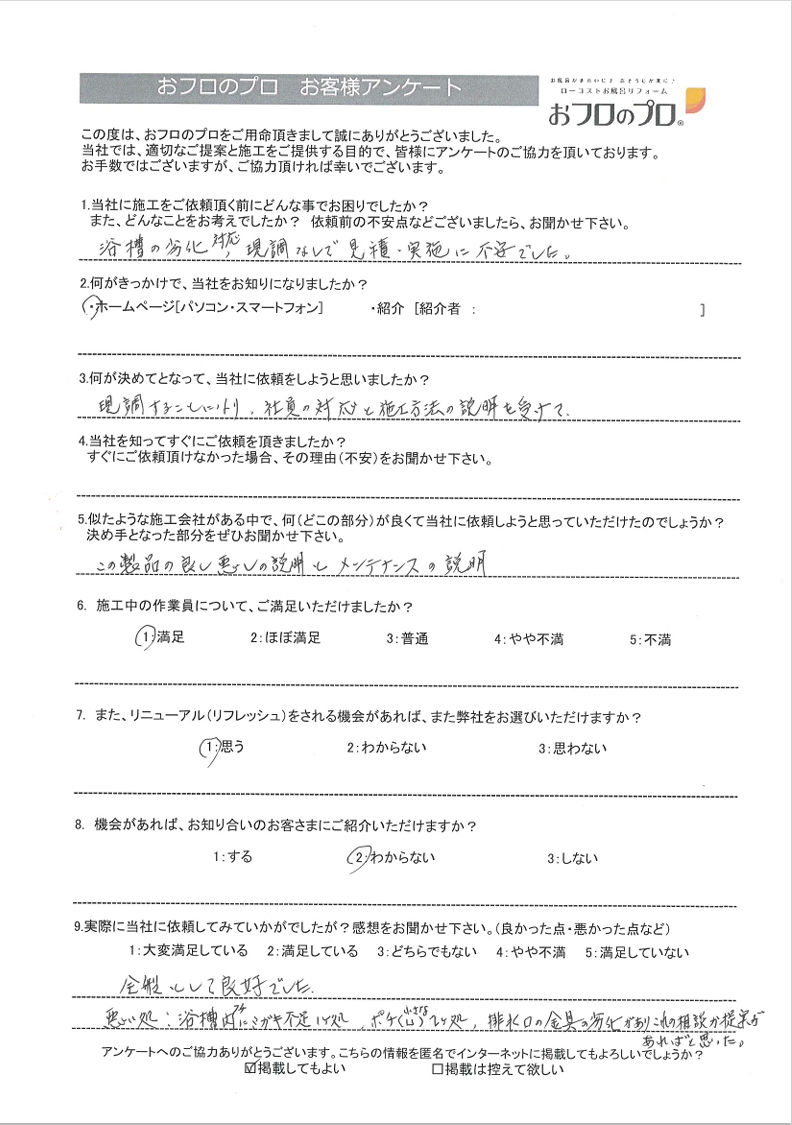 おフロのプロ　お客様アンケート
お風呂がきれいに♪ おそうじが楽に♪
ローコストお風呂リフォーム
おフロのプロ®
この度は、おフロのプロをご用命頂きまして誠にありがとうございました。
当社では、適切なご提案と施工をご提供する目的で、皆様にアンケートのご協力を頂いております。
お手数ではございますが、ご協力頂ければ幸いでございます。
1.当社に施工をご依頼頂く前にどんな事でお困りでしたか？
また、どんなことをお考えでしたか？ 依頼前の不安点などございましたら、お聞かせ下さい。
浴槽の劣化対応，現調なしで見積・実施に不安でした。
2.何がきっかけで、当社をお知りになりましたか？
・ホームページ[パソコン・スマートフォン]　・紹介 [紹介者 :　]
3.何が決めてとなって、当社に依頼をしようと思いましたか？
現調することにより，社員の対応と施工方法の説明を受けて．
4.当社を知ってすぐにご依頼を頂きましたか？
すぐにご依頼頂けなかった場合、その理由(不安)をお聞かせ下さい。
5.似たような施工会社がある中で、何(どこの部分)が良くて当社に依頼しようと思っていただけたのでしょうか？
決め手となった部分をぜひお聞かせ下さい。
この製品の良し悪しの説明と メンテナンスの説明
6. 施工中の作業員について、ご満足いただけましたか？
1:満足　2:ほぼ満足　3:普通　4:やや不満　5:不満
7. また、リニューアル(リフレッシュ)をされる機会があれば、また弊社をお選びいただけますか？
1:思う　2:わからない　3:思わない
8. 機会があれば、お知り合いのお客さまにご紹介いただけますか？
1:する　2:わからない　3:しない
9.実際に当社に依頼してみていかがでしたが？感想をお聞かせ下さい。(良かった点・悪かった点など)
1:大変満足している　2:満足している　3:どちらでもない　4:やや不満　5:満足していない
全般として良好でした．
悪い処：浴槽内にミガキ不足1ヶ処，ポチ(小さな山)2ヶ処，排水口の金具の劣化がありこれの相談か提案が
あればと思った。
アンケートへのご協力ありがとうございます。こちらの情報を匿名でインターネットに掲載してもよろしいでしょうか？
☑掲載してもよい　☐掲載は控えて欲しい